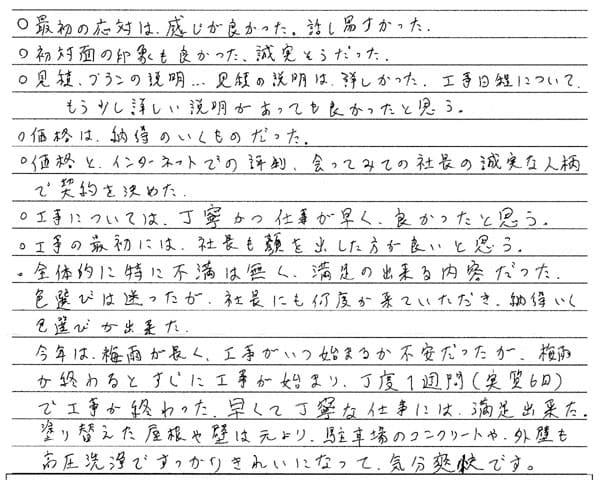 ○最初の応対は、感じが良かった。話し易すかった。
○初対面の印象も良かった、誠実そうだった。
○見積、プランの説明… 見積の説明は、詳しかった、工事日程について、
もう少し詳しい説明があっても良かったと思う。
○価格は、納得のいくものだった。
○価格と、インターネットでの評判、会ってみての社長の誠実な人柄
で契約を決めた、
○工事については、丁寧かつ仕事が早く、良かったと思う。
○工事の最初には、社長も顔を出した方が良いと思う。
○全体的に特に不満は無く、満足の出来る内容だった、
色選びは迷ったが、社長にも何度か来ていただき、納得いく
色選びが出来た、
今年は、梅雨が長く、工事がいつ始まるか不安だったが、梅雨
が終わるとすぐに工事が始まり、丁度1週間(実質6日)
で工事が終わった、早くて丁寧な仕事には、満足出来た。
塗り替えた屋根や壁は元より、駐車場のコンクリートや、外壁も
高圧洗浄ですっかりきれいになって、気分爽快です。